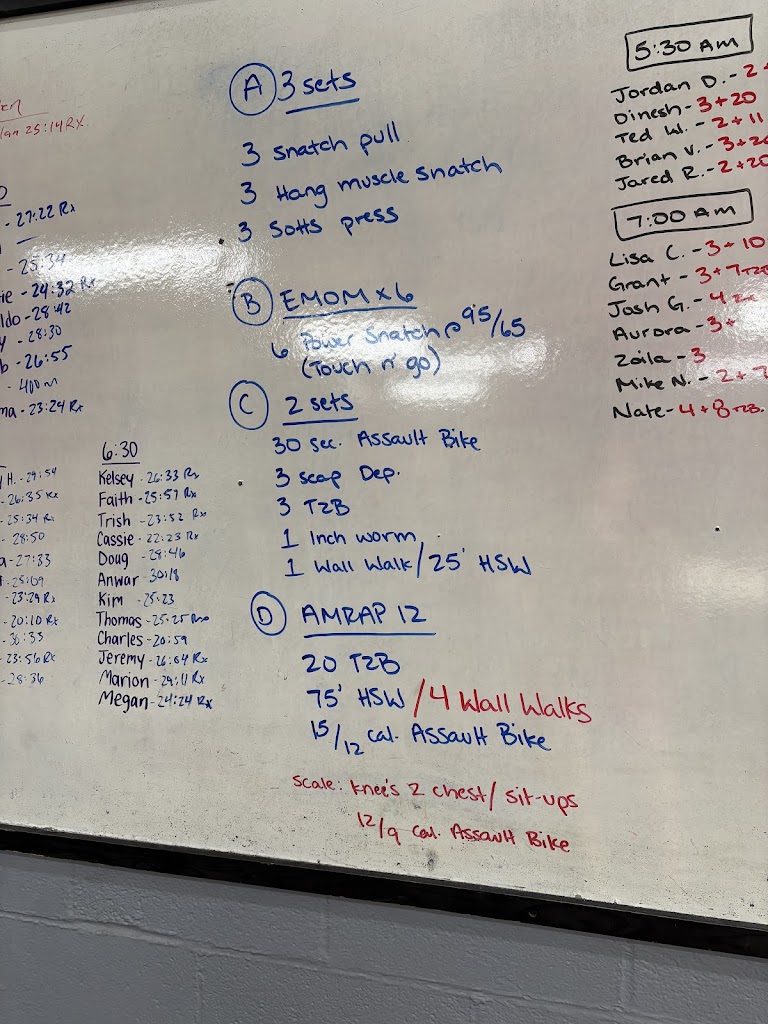 25:14 RX.
- 27:22 Rx
- 25:34
ie - 24:32 Rx
ldo - 28:42
- 28:30
b - 26:55
- 400m
ma - 23:24 Rx
H. - 29:54
- 26:35 Rx
- 25:34 Rx
- 28:50
a - 27:33
- 25:09
- 23:29 Rx
- 20:10 Rx
- 30:33
- 23:56 Rx
- 28:36
6:30
Kelsey - 26:33 Rx
Faith - 25:57 Rx
Trish - 23:52 Rx
Cassie - 22:23 Rx
Doug - 28:46
Anwar - 30:18
Kim - 25:23
Thomas - 25:25
Charles - 20:59
Jeremy - 26:04 Rx
Marion - 29:11 Rx
Megan - 24:24 Rx
A 3 sets
3 snatch pull
3 Hang muscle snatch
3 Sotts press
B EMOM x 6
6 Power Snatch @ 95/65
(Touch n' go)
C 2 sets
30 sec. Assault Bike
3 scap Dep.
3 T2B
1 Inch worm
1 Wall Walk / 25' HSW
D AMRAP 12
20 T2B
75' HSW / 4 Wall Walks
15/12 cal. Assault Bike
scale: knee's 2 chest / sit-ups
12/9 cal. Assault Bike
5:30 AM
Jordan D. - 2 +
Dinesh - 3 + 20
Ted W. - 2 + 11
Brian V. - 3 + 20
Jared R. - 2 + 20
7:00 AM
Lisa C. - 3 + 10
Grant - 3 + 7
Josh G. - 4
Aurora - 3 +
Zoila - 3
Mike N. - 2 + 7
Nate - 4 + 8